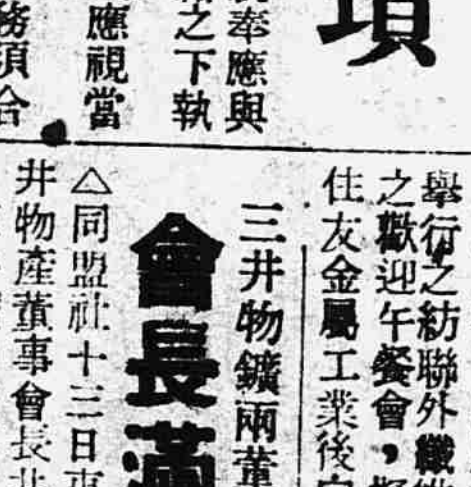 項
奉應與
之下執
應視當
務須合
舉行之紡聯外纖
之歡迎午餐會，
住友金屬工業後
三井物鑛兩董
會長滿
△同盟社十三日
井物產董事會長